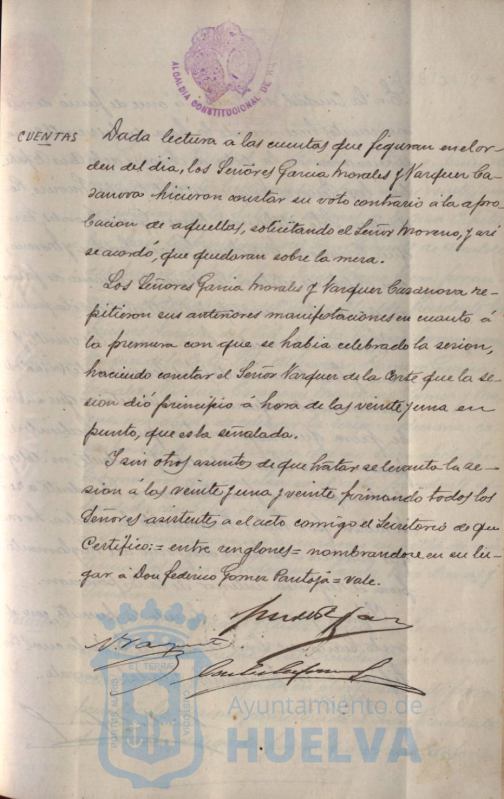 ALCALDIA CONSTITUCIONAL DE
CUENTAS
Dada lectura á las cuentas que figuran en el or-
den del dia, los Señores Garcia Morales y Vazquez Ca-
sanova hicieron constar su voto contrario á la apro-
bacion de aquellas, solicitando el Señor Moreno, y asi
se acordó, que quedaran sobre la mesa.
Los Señores Garcia Morales y Vazquez Casanova re-
pitieron sus anteriores manifestaciones en cuanto á
la premura con que se habia celebrado la sesion,
haciendo constar el Señor Vazquez de la Corte que la se-
sion dió principio á hora de las veinte y una en
punto, que esta señalada.
Y sin otros asuntos de que tratar se levanto la se-
sion á las veinte y una y veinte firmando todos los
Señores asistentes a el acto comigo el Secretario de que
Certifico:= entre renglones= nombrandose en su lu-
gar á Don Federico Gomez Pantoja= vale.
Vazquez
PORTUS MARIS
ET TERRÆ
CUSTODIA
Ayuntamiento de
HUELVA